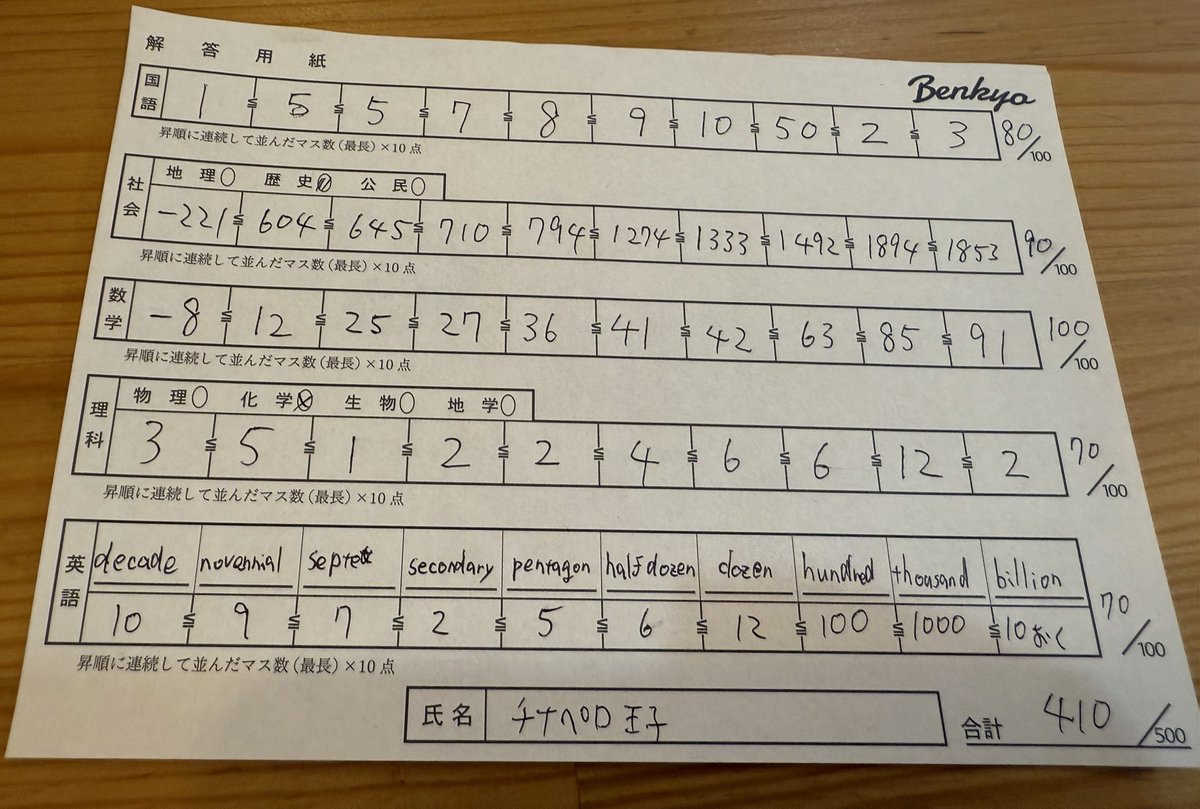 解答用紙
Benkyo
国語 1 ≦ 5 ≦ 5 ≦ 7 ≦ 8 ≦ 9 ≦ 10 ≦ 50 ≦ 2 ≦ 3 80/100
昇順に連続して並んだマス数(最長)×10点
地理 歴史 公民
社会 -221 ≦ 604 ≦ 645 ≦ 710 ≦ 794 ≦ 1274 ≦ 1333 ≦ 1492 ≦ 1894 ≦ 1853 90/100
昇順に連続して並んだマス数(最長)×10点
数学 -8 ≦ 12 ≦ 25 ≦ 27 ≦ 36 ≦ 41 ≦ 42 ≦ 63 ≦ 85 ≦ 91 100/100
昇順に連続して並んだマス数(最長)×10点
物理 化学 生物 地学
理科 3 ≦ 5 ≦ 1 ≦ 2 ≦ 2 ≦ 4 ≦ 6 ≦ 6 ≦ 12 ≦ 2 70/100
昇順に連続して並んだマス数(最長)×10点
英語 decade novennial secondary pentagon half dozen dozen hundred thousand billion
10 ≦ 9 ≦ 7 ≦ 2 ≦ 5 ≦ 6 ≦ 12 ≦ 100 ≦ 1000 ≦ 10おく 70/100
昇順に連続して並んだマス数(最長)×10点
氏名 チナペロ王子 合計 410/500